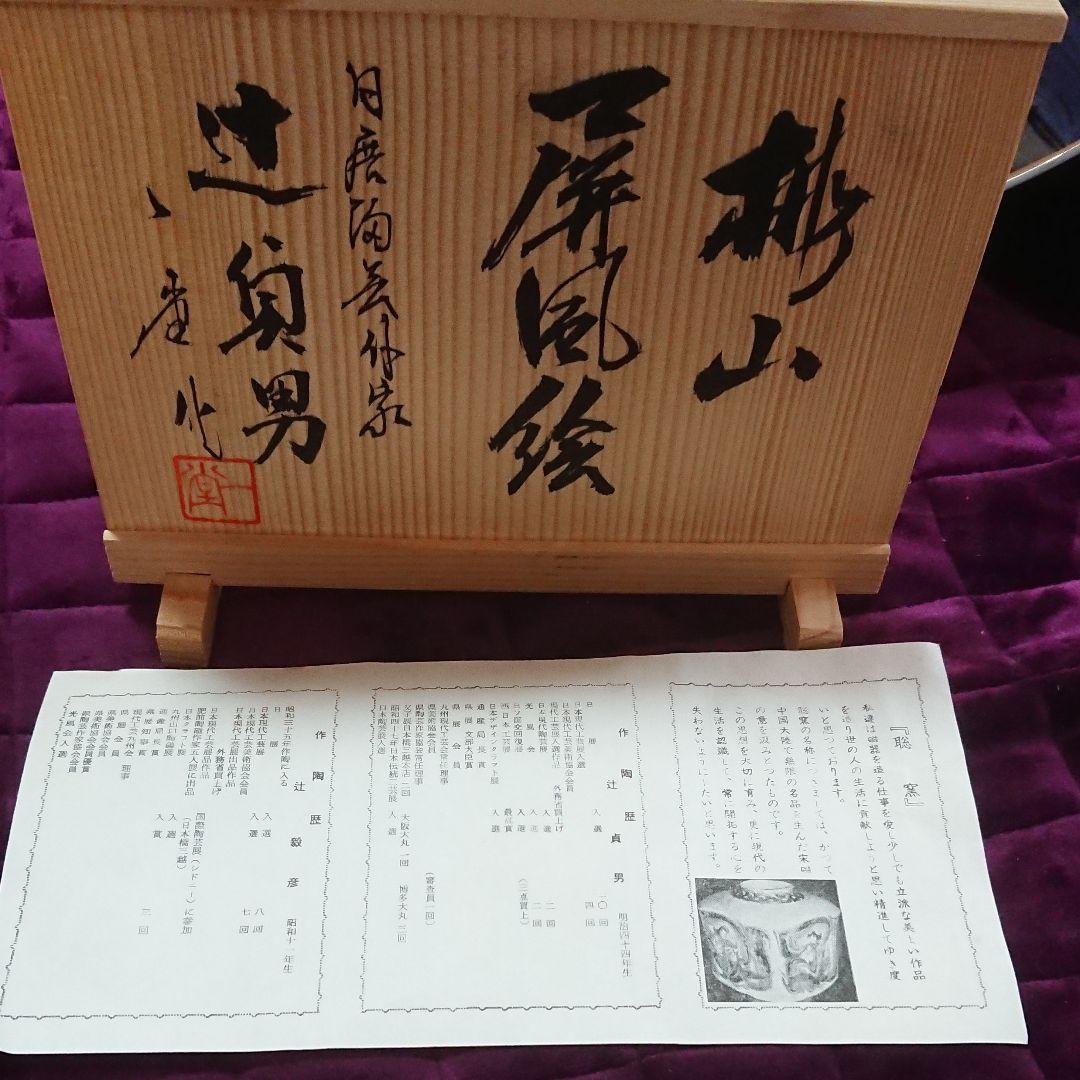 山
屏風絵
日展陶芸作家
辻貞男
一堂
『聡窯』
私達は磁器を造る仕事を愛し少しでも立派な美しい作品
を造り世の人の生活に貢献しようと思い精進してゆき度
いと思っております。
聡窯の名称につきましては、かつて
中国大陸で無限の名品を生んだ宋窯
の意を汲みとったものです。
この思想を大切に育み、更に現代の
生活を認識して、常に開拓する心を
失わないようにしたいと思います。
作陶歴
辻貞男 明治四十四年生
日展 入選 一〇回
日本現代工芸展入選 四回
日本現代工芸美術協会会員
現代工芸展入選作品 外務省買上げ
日本現代陶芸展 入選 二回
光風会 入選 二回
西日本工芸展 最高賞
日本デザインクラフト展 入選
通産局長賞
県展 文部大臣賞
県展会員
九州現代工芸会常任理事
県美術協会会員
県陶芸作家協会常任理事
父子展日本橋三越本店二回 大阪大丸一回 博多大丸三回
昭和四十七年日本伝統工芸展 入選
日本陶芸展入選
作陶歴
辻毅彦 昭和十一年生
昭和三十五年作陶に入る
日展 入選 八回
日本現代工芸展 入選 七回
日本現代工芸美術協会会員
日本現代工芸展出品作品
外務省買上げ
国際陶芸展(シドニー)に参加
肥前陶磁作家五人展に出品 (日本橋三越)
日本クラフト展 入選
九州山口陶磁展 入賞 三回
通産局長賞
県展知事賞
現代工芸九州会 理事
県展会員
県美術協会会員
県美術協会会員優賞
県陶芸作家協会会員
光風会入選